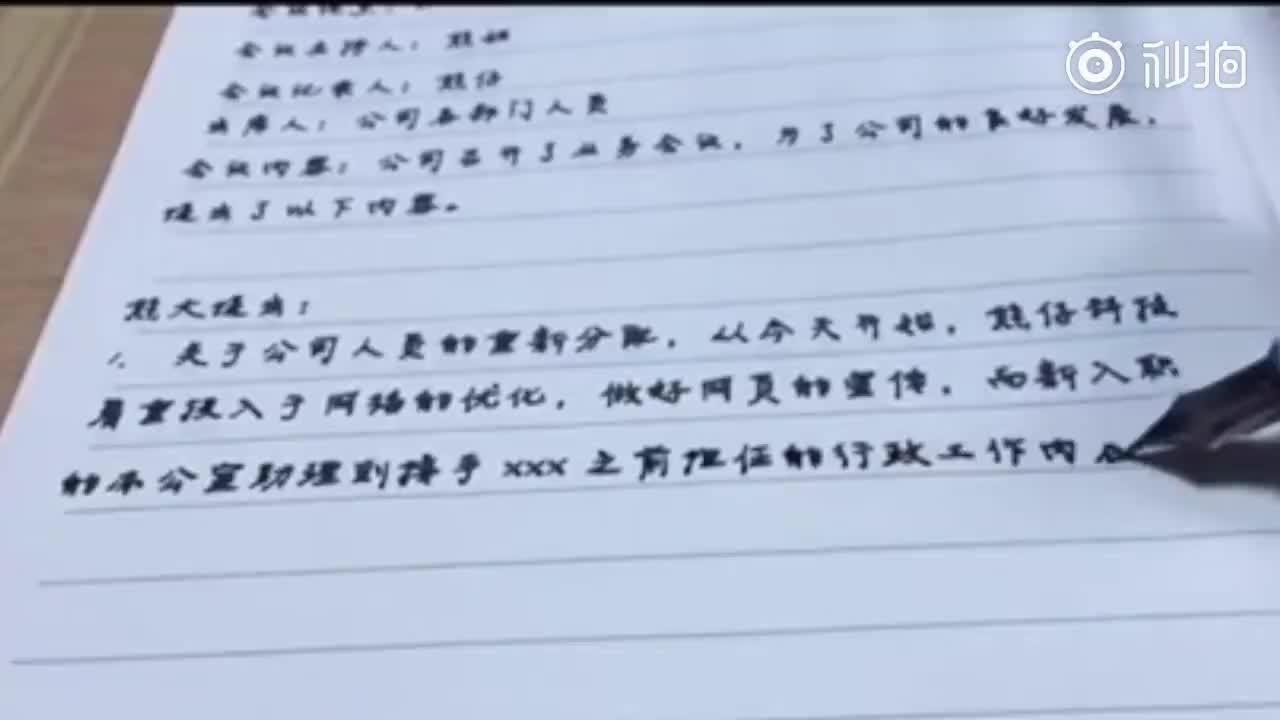 秒拍
会议主持人：熊妞
会议记录人：熊仔
出席人：公司各部门人员
会议内容：公司召开了业务会议，为了公司的良好发展，
提出了以下内容。
熊大提出：
1、关于公司人员的重新分配，从今天开始，熊仔科技
着重投入于网络的优化，做好网页的宣传，而新入职
的办公室助理则接手xxx之前担任的行政工作内